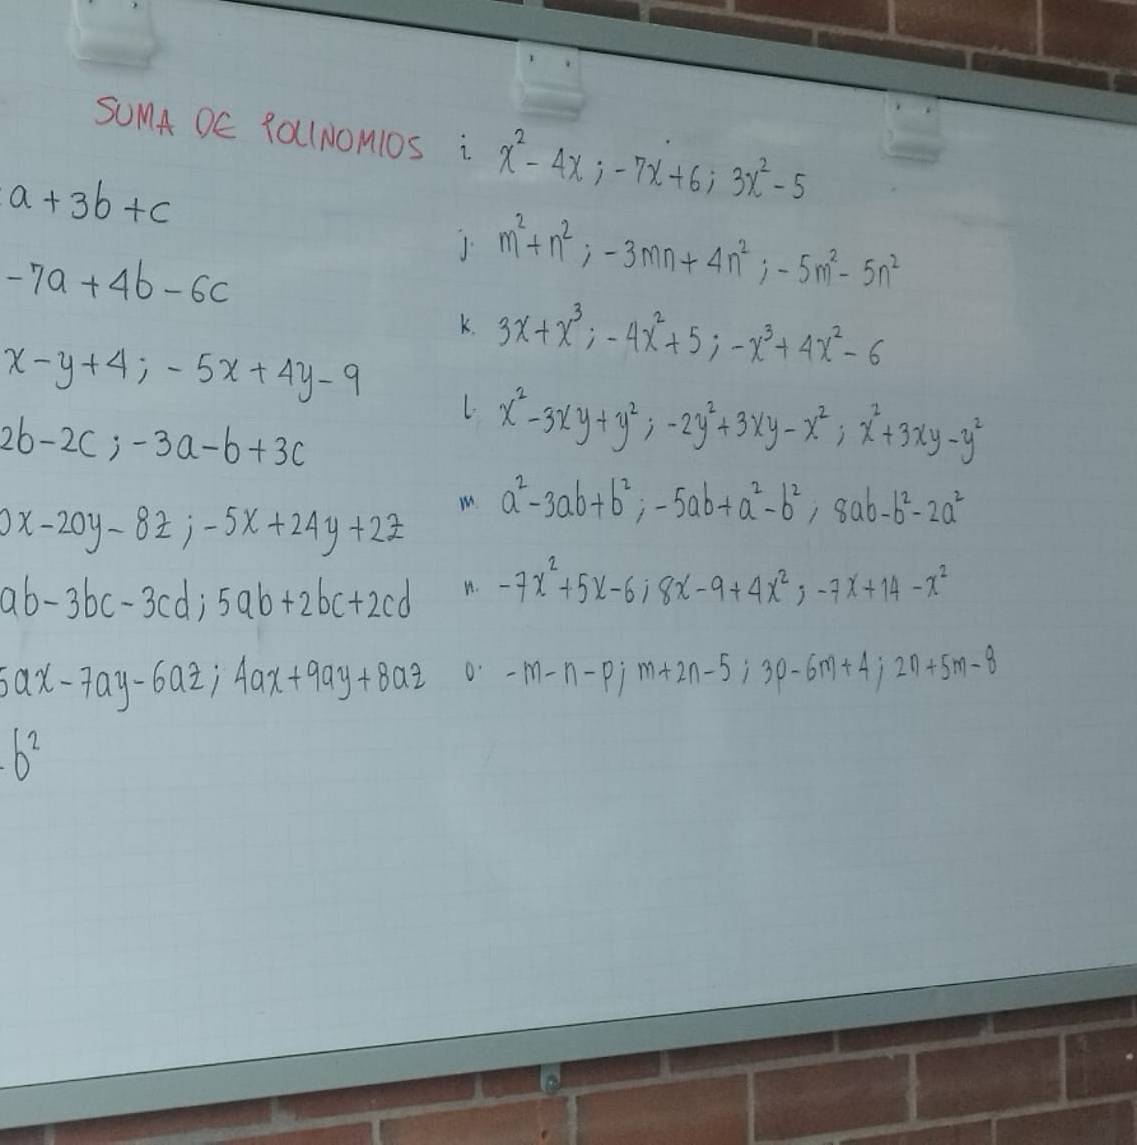 SUMA DE POLINOMIOS
a + 3b + c
-7a + 4b - 6c
x - y + 4; -5x + 4y - 9
2b - 2c; -3a - b + 3c
0x - 20y - 8z; -5x + 24y + 2z
ab - 3bc - 3cd; 5ab + 2bc + 2cd
5ax - 7ay - 6az; 4ax + 9ay + 8az
b²
i x² - 4x; -7x + 6; 3x² - 5
j. m² + n²; -3mn + 4n²; -5m² - 5n²
k. 3x + x³; -4x² + 5; -x³ + 4x² - 6
l. x² - 3xy + y²; -2y² + 3xy - x²; x² + 3xy - y²
m. a² - 3ab + b²; -5ab + a² - b²; 8ab - b² - 2a²
n. -7x² + 5x - 6; 8x - 9 + 4x²; -7x + 14 - x²
o. -m - n - p; m + 2n - 5; 3p - 6m + 4; 2n + 5m - 8